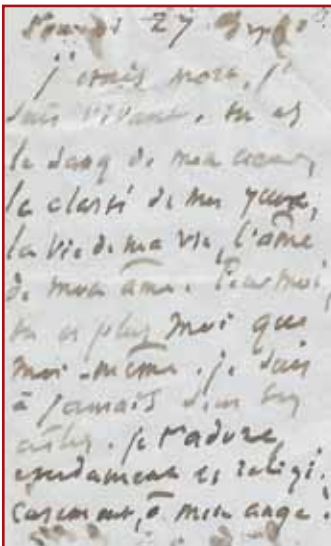 27
j'étais mort, je
suis vivant. tu es
le sang de mon coeur,
la clarté de mes yeux,
la vie de ma vie, l'âme
de mon âme. moi,
tu es plus moi que
moi-même. je suis
à jamais dans tes
ailes. je t'adore
éperdument et religi-
eusement, ô mon ange.